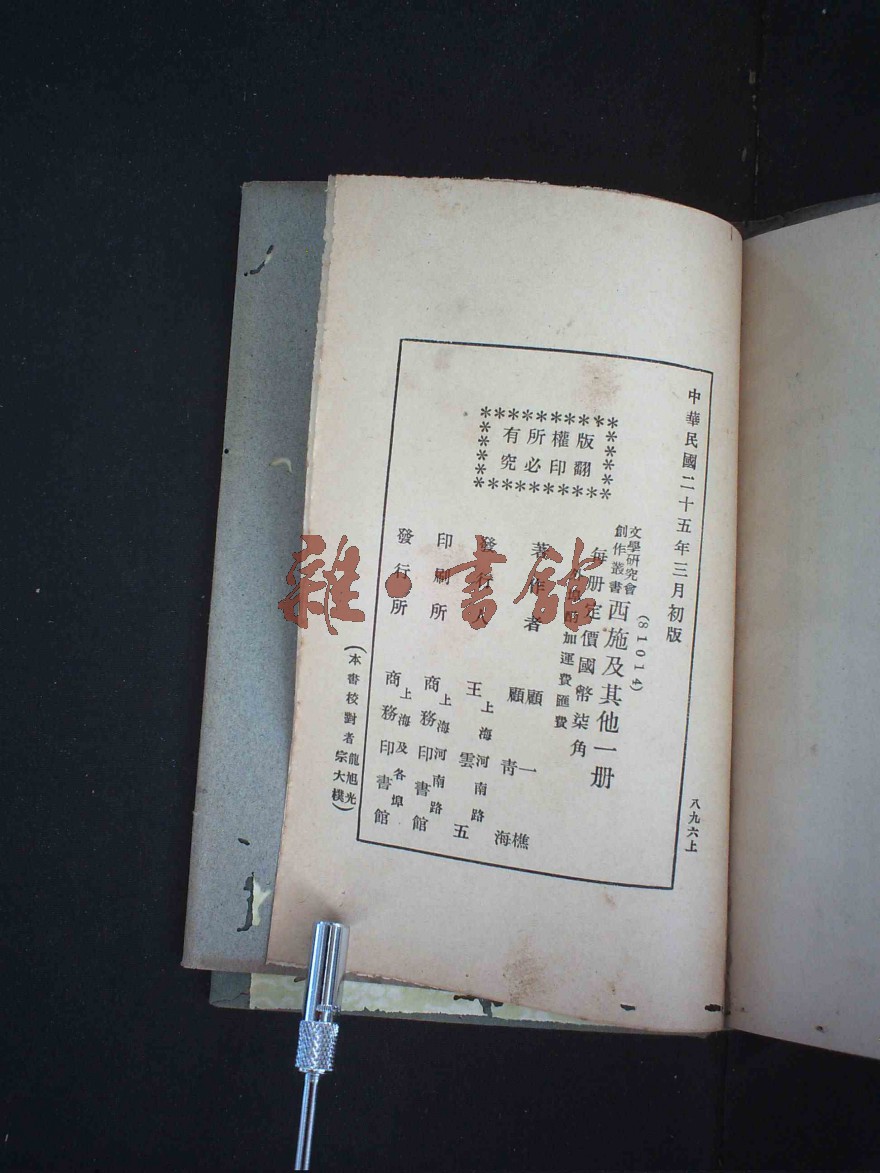 中華民國二十五年三月初版
八九六上
版權所有
翻印必究
文學研究會
創作叢書
西施及其他一册
(81014)
每册定價國幣柒角
加運費匯費
著作者
顧一樵
顧青海
發行人
上海河南路
王雲五
印刷所
上海河南路
商務印書館
發行所
上海及各埠
商務印書館
(本書校對者龍旭光
宗大樸)
雜·書館